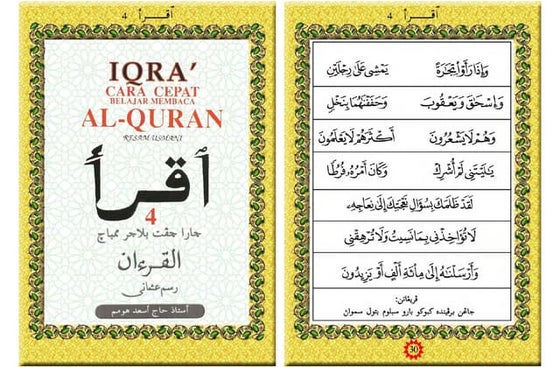 اقرأ 4
IQRA'
CARA CEPAT
BELAJAR MEMBACA
AL-QURAN
RESAM USMANI
اقرأ
4
چارا چڤت بلاجر ممباچ
القرءان
رسم عثماني
استاذ حاج أسعد هومم
اقرأ 4
وَإِذَا رَأَوْا تِجَٰرَةً يَمْشِى عَلَىٰ رِجْلَيْنِ
وَإِسْحَٰقَ وَيَعْقُوبَ وَحَفَفْنَٰهُمَا بِنَخْلٍ
وَهُمْ لَا يَشْعُرُونَ أَكْثَرَهُمْ لَا يَعْلَمُونَ
يَٰلَيْتَنِى لَوْ أُشْرِكْ وَكَانَ أَمْرُهُۥ فُرُطًا
لَقَدْ ظَلَمَكَ بِسُؤَالِ نَعْجَتِكَ إِلَىٰ نِعَاجِهِۦ
لَا تُؤَاخِذْنِى بِمَا نَسِيتُ وَلَا تُرْهِقْنِى
وَأَرْسَلْنَٰهُ إِلَىٰ مِائَةِ أَلْفٍ أَوْ يَزِيدُونَ
ڤريڠتن:
جاڠن برڤينده كبوكو بارو سبلوم بتول سموان
30